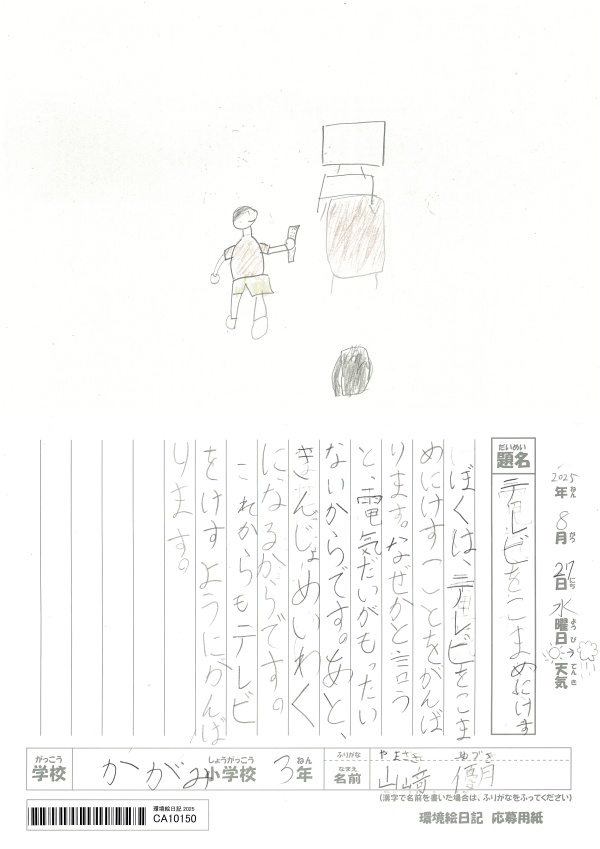 2025年8月27日水曜日天気
題名 テレビをこまめにけす
ぼくは、テレビをこま
めにけすことをがんば
ります。なぜかと言う
と、電気だいがもったい
ないからです。あと、
きんじょめいわく
になるからです。
これからもテレビ
をけすようにがんば
ります。
がっこう しょうがっこう ねん ふりがな やまさき ゆづき
学校 かがみ小学校 3年 なまえ 名前 山﨑 優月
(漢字で名前を書いた場合は、ふりがなをふってください)
環境絵日記 2025
CA10150
環境絵日記 応募用紙